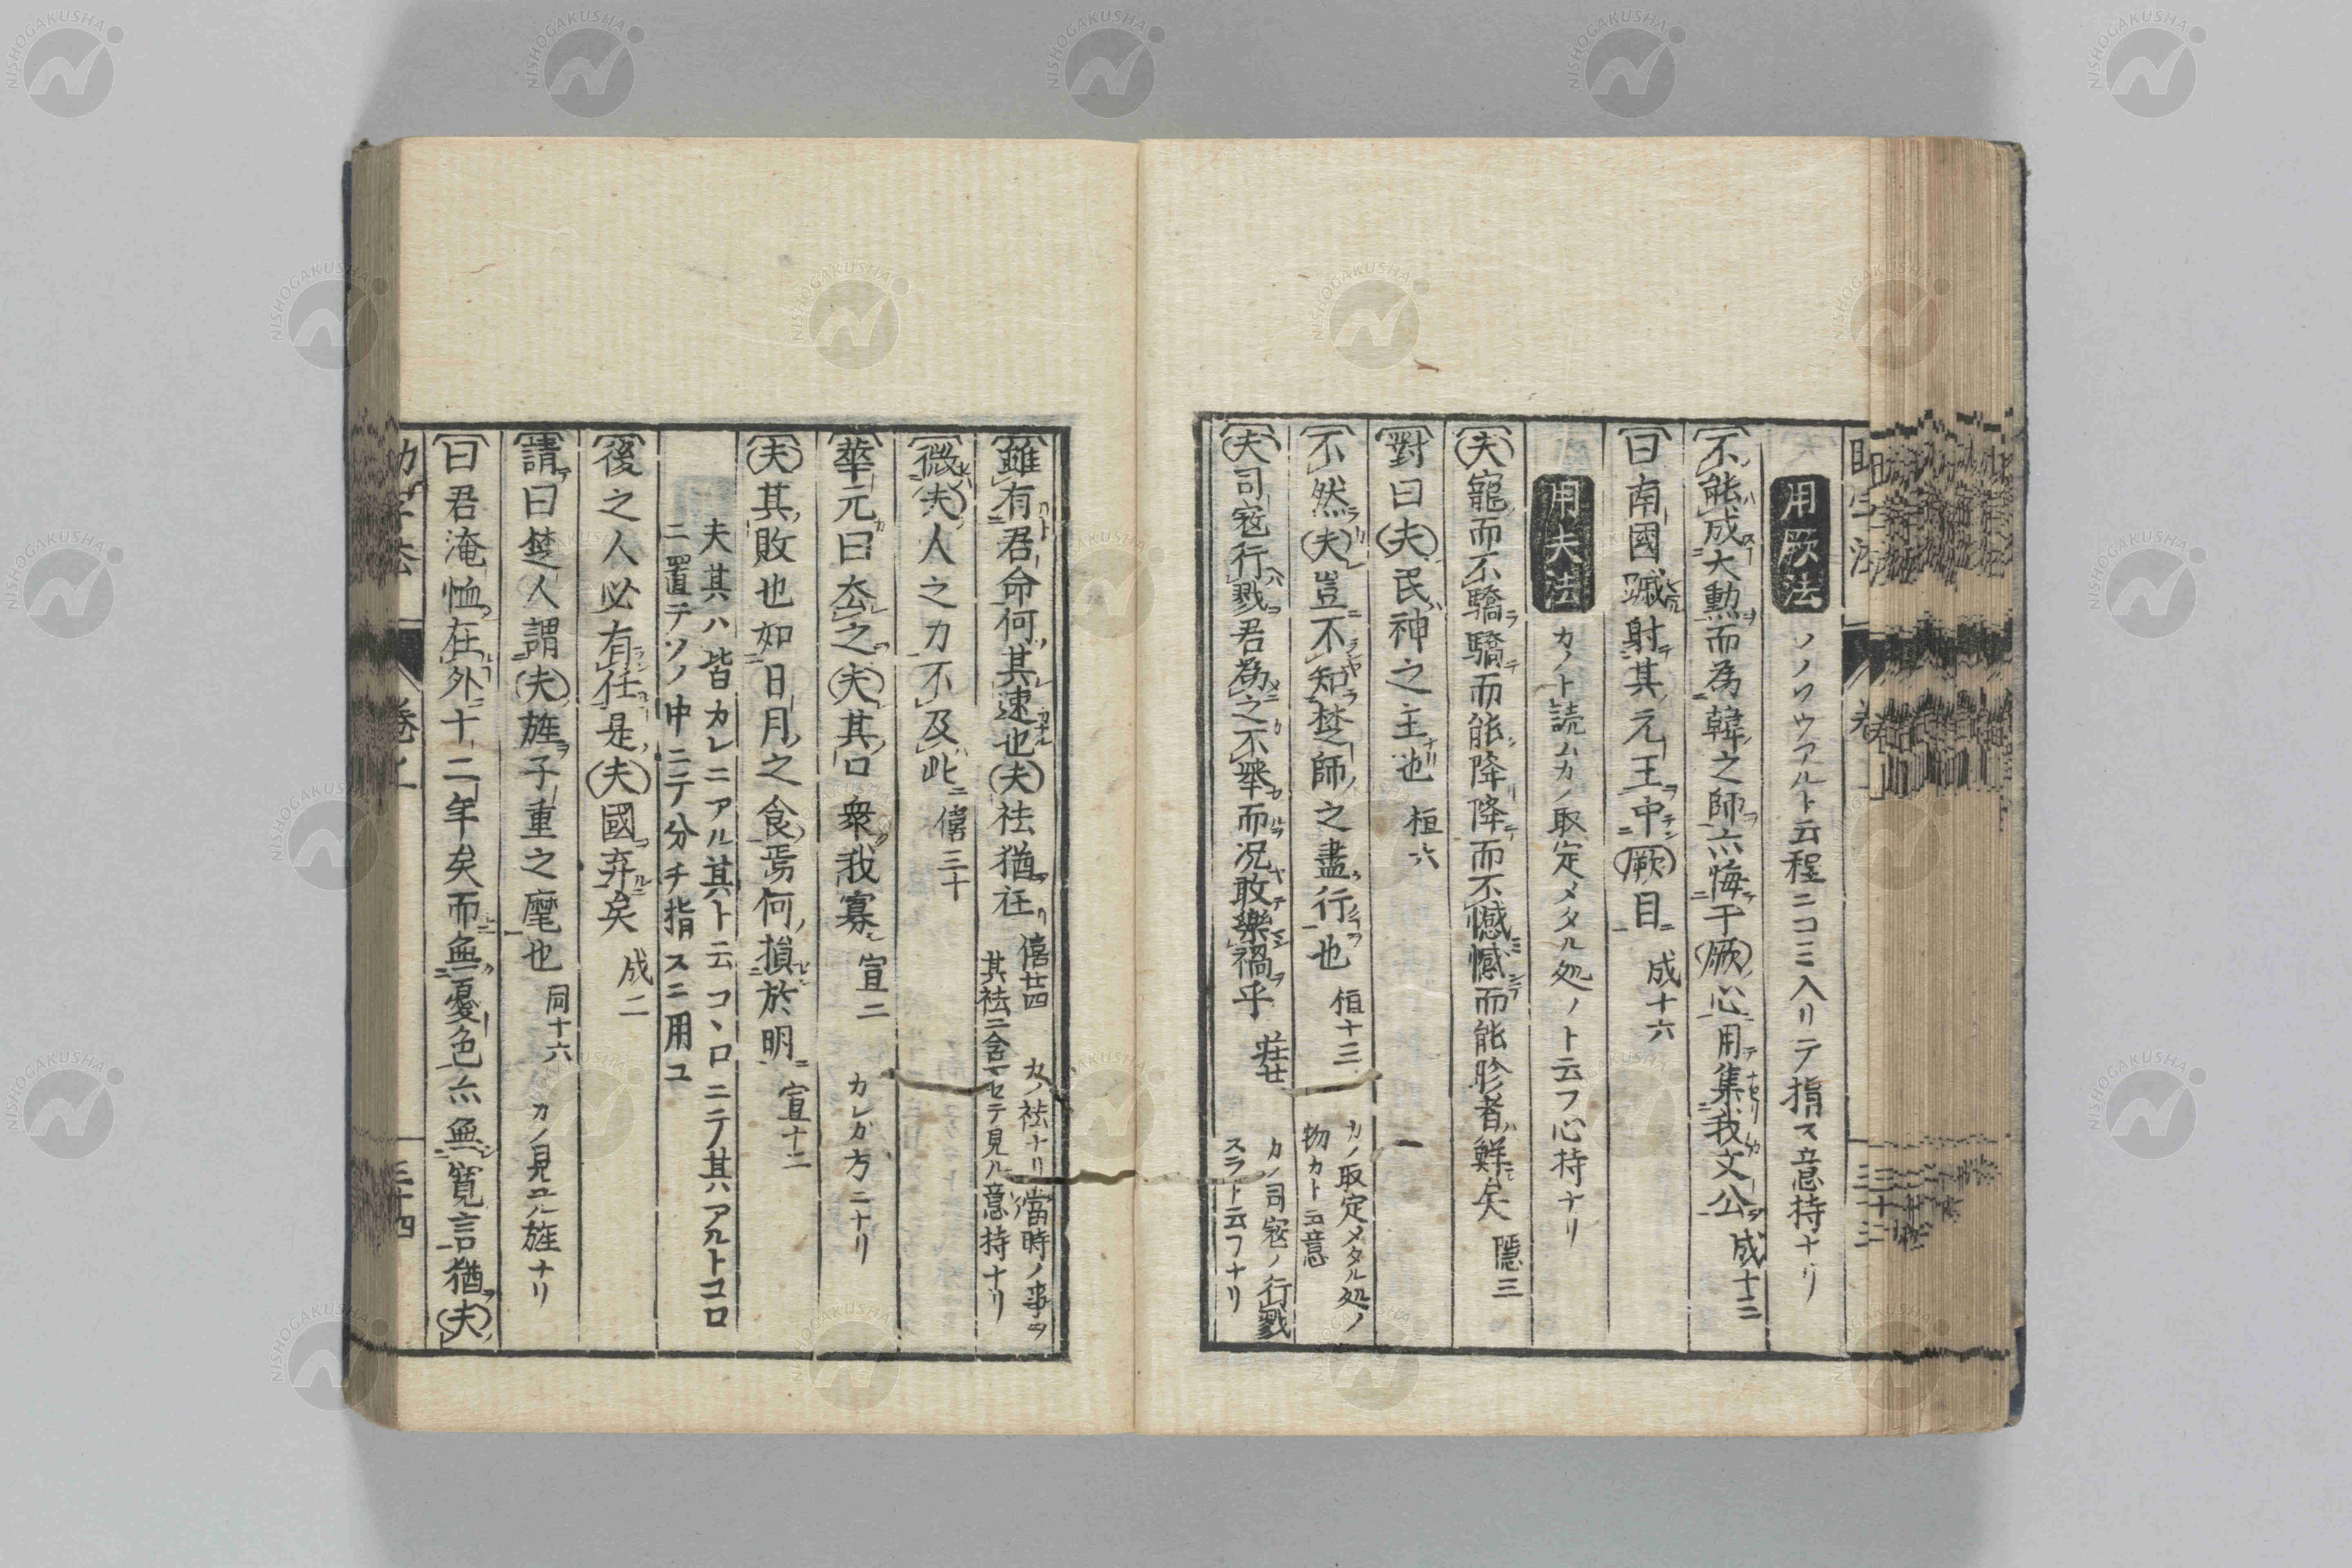 用厥法 ソノワウアルト云程ニコミ入リテ指ス意持ナリ
不能成大勲而為韓之師亦悔于厥心用集我文公 成十三
曰南國䠞射其元王中厥目 成十六
用夫法 カノト読ムカノ取定メタル処ノト云フ心持ナリ
夫寵而不驕驕而能降降而不憾憾而能眕者鮮矣 隠三
對曰夫民神之主也 桓六
不然夫豈不知楚師之盡行也 桓十三 カノ取定メタル処ノ
物カト云意
夫司寇行戮君為之不舉而况敢樂禍乎 莊廿 カノ司寇ノ行戮
スラト云フナリ
雖有君命何其速也夫袪猶在 僖廿四 カノ袪ナリ當時ノ事ヲ
其袪ニ含マセテ見ル意持ナリ
微夫人之力不及此 僖三十
華元曰去之夫其口衆我寡 宣二 カレガ方ニナリ
夫其敗也如日月之食焉何損於明 宣十二
夫其ハ皆カレニアル其ト云コヽロニテ其ハアルトコロ
ニ置テソノ中ニテ分チ指スニ用ユ
後之人必有任是夫國弃矣 成二
請曰楚人謂夫旌子重之麾也 同十六 カノ見ユル旌ナリ
曰君淹恤在外十二年矣而無憂色亦無寛言猶夫
助字法 巻上 三十四
NISHOGAKUSHA